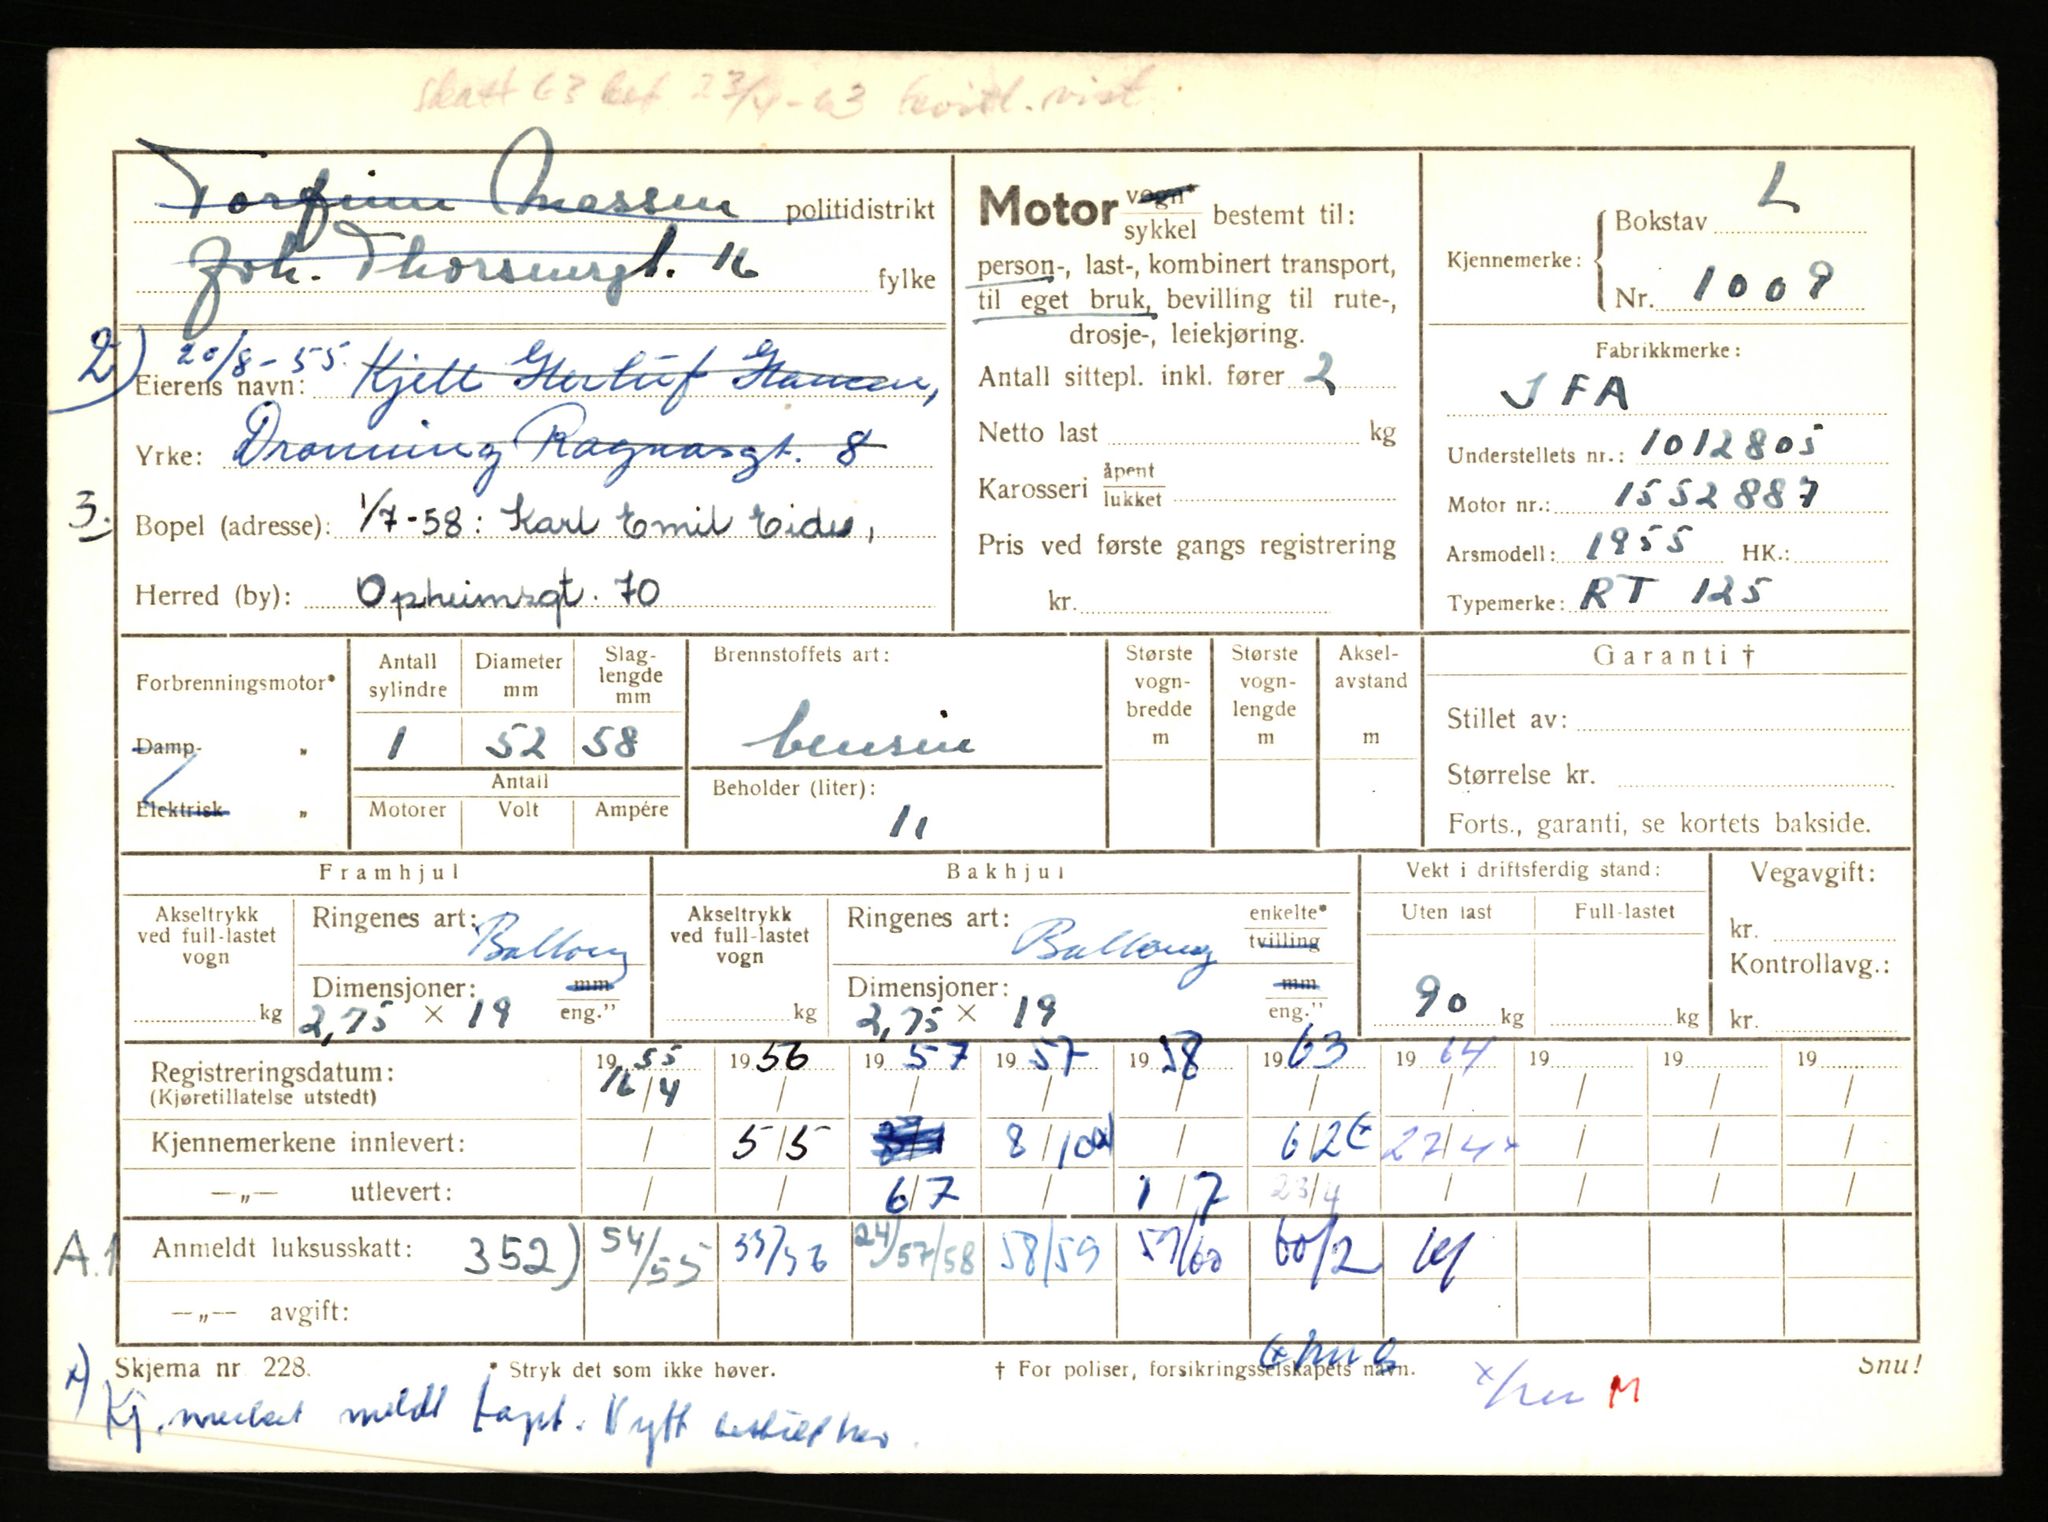 skatt 63 bet 23/4-63 kvitt. vist
Torfinn politidistrikt
Joh. Thorsensgt. 16 fylke
2) 20/8-55.
Eierens navn: Kjell Herluf Hansen,
Yrke: Dronning Ragnasgt. 8
3. Bopel (adresse): 1/7-58: Karl Emil Eide,
Herred (by): Opheimsgt. 70
Motor vogn* / sykkel bestemt til:
person-, last-, kombinert transport,
til eget bruk, bevilling til rute-,
drosje-, leiekjøring.
Antall sittepl. inkl. fører 2
Netto last kg
Karosseri åpent / lukket
Pris ved første gangs registrering
kr.
Kjennemerke: Bokstav L
Nr. 1009
Fabrikkmerke:
IFA
Understellets nr.: 1012805
Motor nr.: 1552887
Arsmodell: 1955 HK.:
Typemerke: RT 125
Forbrenningsmotor*
Damp- „
Elektrisk „
Antall sylindre Diameter mm Slag-lengde mm
1 52 58
Antall
Motorer Volt Ampére
Brennstoffets art:
bensin
Beholder (liter):
11
Største vogn-bredde m
Største vogn-lengde m
Aksel-avstand m
Garanti †
Stillet av:
Størrelse kr.
Forts., garanti, se kortets bakside.
Framhjul
Akseltrykk ved full-lastet vogn kg
Ringenes art: Ballong
Dimensjoner: mm / eng."
2,75 × 19
Bakhjul
Akseltrykk ved full-lastet vogn kg
Ringenes art: Ballong enkelte* / tvilling
Dimensjoner: mm / eng."
2,75 × 19
Vekt i driftsferdig stand:
Uten last Full-lastet
90 kg kg
Vegavgift:
kr.
Kontrollavg.:
kr.
Registreringsdatum: 1955 1956 1957 1957 1958 1963 1964 19 19 19
(Kjøretillatelse utstedt) 16/4 / / / / / / / / /
Kjennemerkene innlevert: / 5/5 8/10 / 6/2 27/4 x / / /
—„— utlevert: / / 6/7 / 1/7 23/4 / / / /
A.1 Anmeldt luksusskatt: 352) 54/55 55/56 24/57/58 58/59 59/60 60/2 64
—„— avgift:
Skjema nr. 228. * Stryk det som ikke høver. † For poliser, forsikringsselskapets navn. Snu!
x) Kj.merket meldt tapt. Nytt x/ M